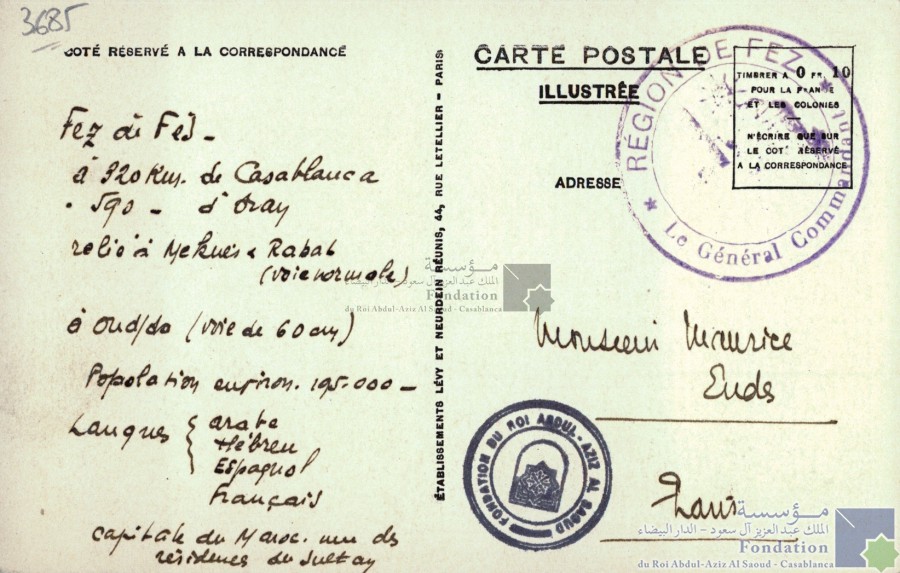 3685
COTÉ RÉSERVÉ A LA CORRESPONDANCE
Fez de Fès –
à 320 Km. de Casablanca
" 590 – d'Oran
relié à Meknès & Rabat
(voie normale)
à Oudjda (voie de 60 cm)
Population environ. 195.000 –
Langues { arabe
Hébreu
Espagnol
Français
capitale du Maroc. une des
résidences du Sultan
ÉTABLISSEMENTS LÉVY ET NEURDEIN RÉUNIS, 44, RUE LETELLIER – PARIS
CARTE POSTALE
ILLUSTRÉE
ADRESSE
TIMBRER A 0 FR. 10
POUR LA FRANCE
ET LES COLONIES
N'ÉCRIRE QUE SUR
LE COTÉ RÉSERVÉ
A LA CORRESPONDANCE
★ RÉGION DE FEZ ★
Le Général Commandant
Monsieur Maurice
مؤسسة
الملك عبد العزيز آل سعود – الدار البيضاء
Fondation
du Roi Abdul-Aziz Al Saoud - Casablanca
FONDATION DU ROI ABDUL-AZIZ AL SAOUD
مؤسسة
الملك عبد العزيز آل سعود – الدار البيضاء
Fondation
du Roi Abdul-Aziz Al Saoud - Casablanca